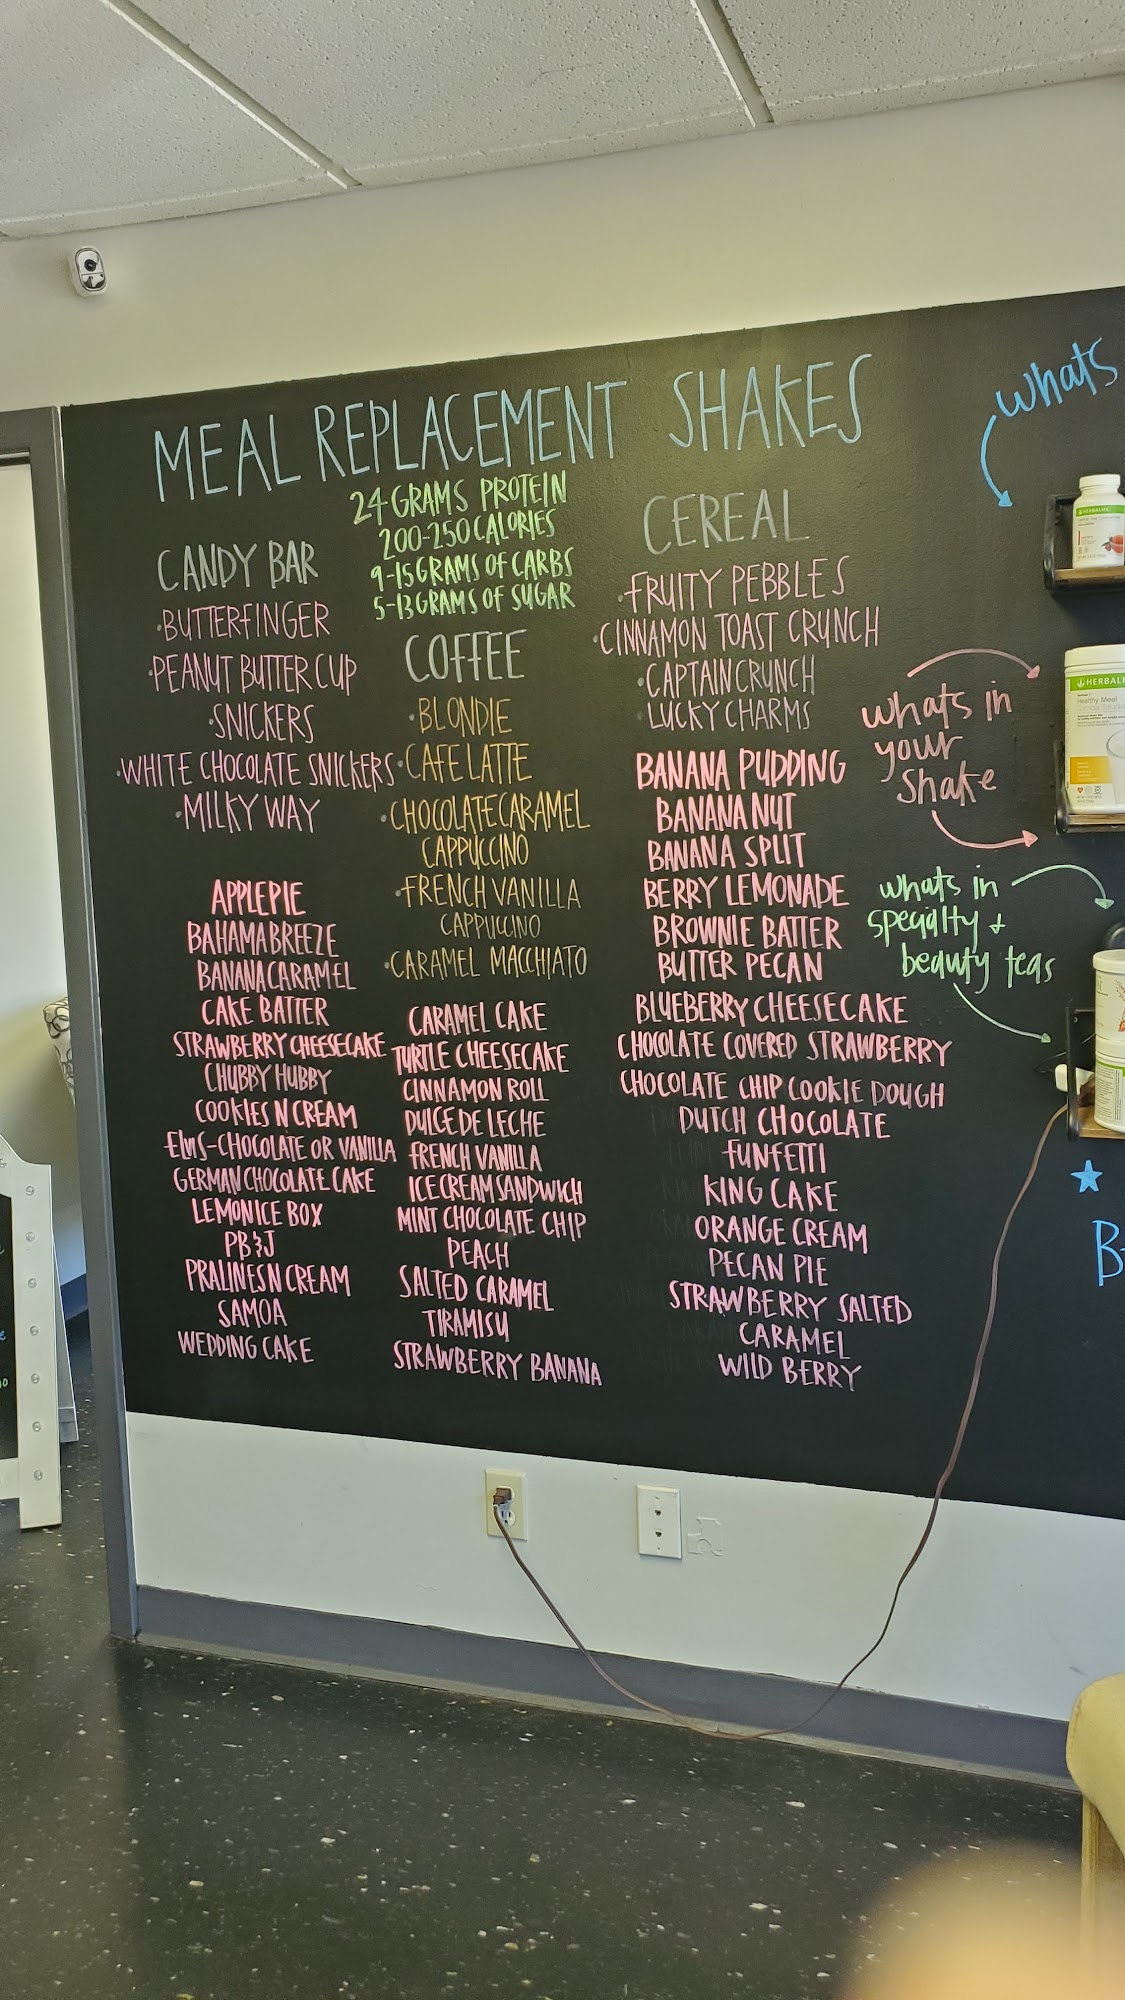 MEAL REPLACEMENT SHAKES
24 GRAMS PROTEIN
200-250 CALORIES
9-15 GRAMS OF CARBS
5-13 GRAMS OF SUGAR
CANDY BAR
·BUTTERFINGER
·PEANUT BUTTER CUP
·SNICKERS
·WHITE CHOCOLATE SNICKERS
·MILKY WAY
APPLE PIE
BAHAMA BREEZE
BANANA CARAMEL
CAKE BATTER
STRAWBERRY CHEESECAKE
CHUBBY HUBBY
COOKIES N CREAM
ELVIS-CHOCOLATE OR VANILLA
GERMAN CHOCOLATE CAKE
LEMON ICE BOX
PB&J
PRALINES N CREAM
SAMOA
WEDDING CAKE
COFFEE
·BLONDIE
·CAFE LATTE
·CHOCOLATE CARAMEL
CAPPUCCINO
·FRENCH VANILLA
CAPPUCCINO
·CARAMEL MACCHIATO
CARAMEL CAKE
TURTLE CHEESECAKE
CINNAMON ROLL
DULCE DE LECHE
FRENCH VANILLA
ICE CREAM SANDWICH
MINT CHOCOLATE CHIP
PEACH
SALTED CARAMEL
TIRAMISU
STRAWBERRY BANANA
CEREAL
·FRUITY PEBBLES
·CINNAMON TOAST CRUNCH
·CAPTAIN CRUNCH
·LUCKY CHARMS
BANANA PUDDING
BANANA NUT
BANANA SPLIT
BERRY LEMONADE
BROWNIE BATTER
BUTTER PECAN
BLUEBERRY CHEESECAKE
CHOCOLATE COVERED STRAWBERRY
CHOCOLATE CHIP COOKIE DOUGH
DUTCH CHOCOLATE
FUNFETTI
KING CAKE
ORANGE CREAM
PECAN PIE
STRAWBERRY SALTED
CARAMEL
WILD BERRY
whats
whats in
your
shake
whats in
specialty +
beauty teas
HERBALIFE
HERBALI
Healthy Meal
B